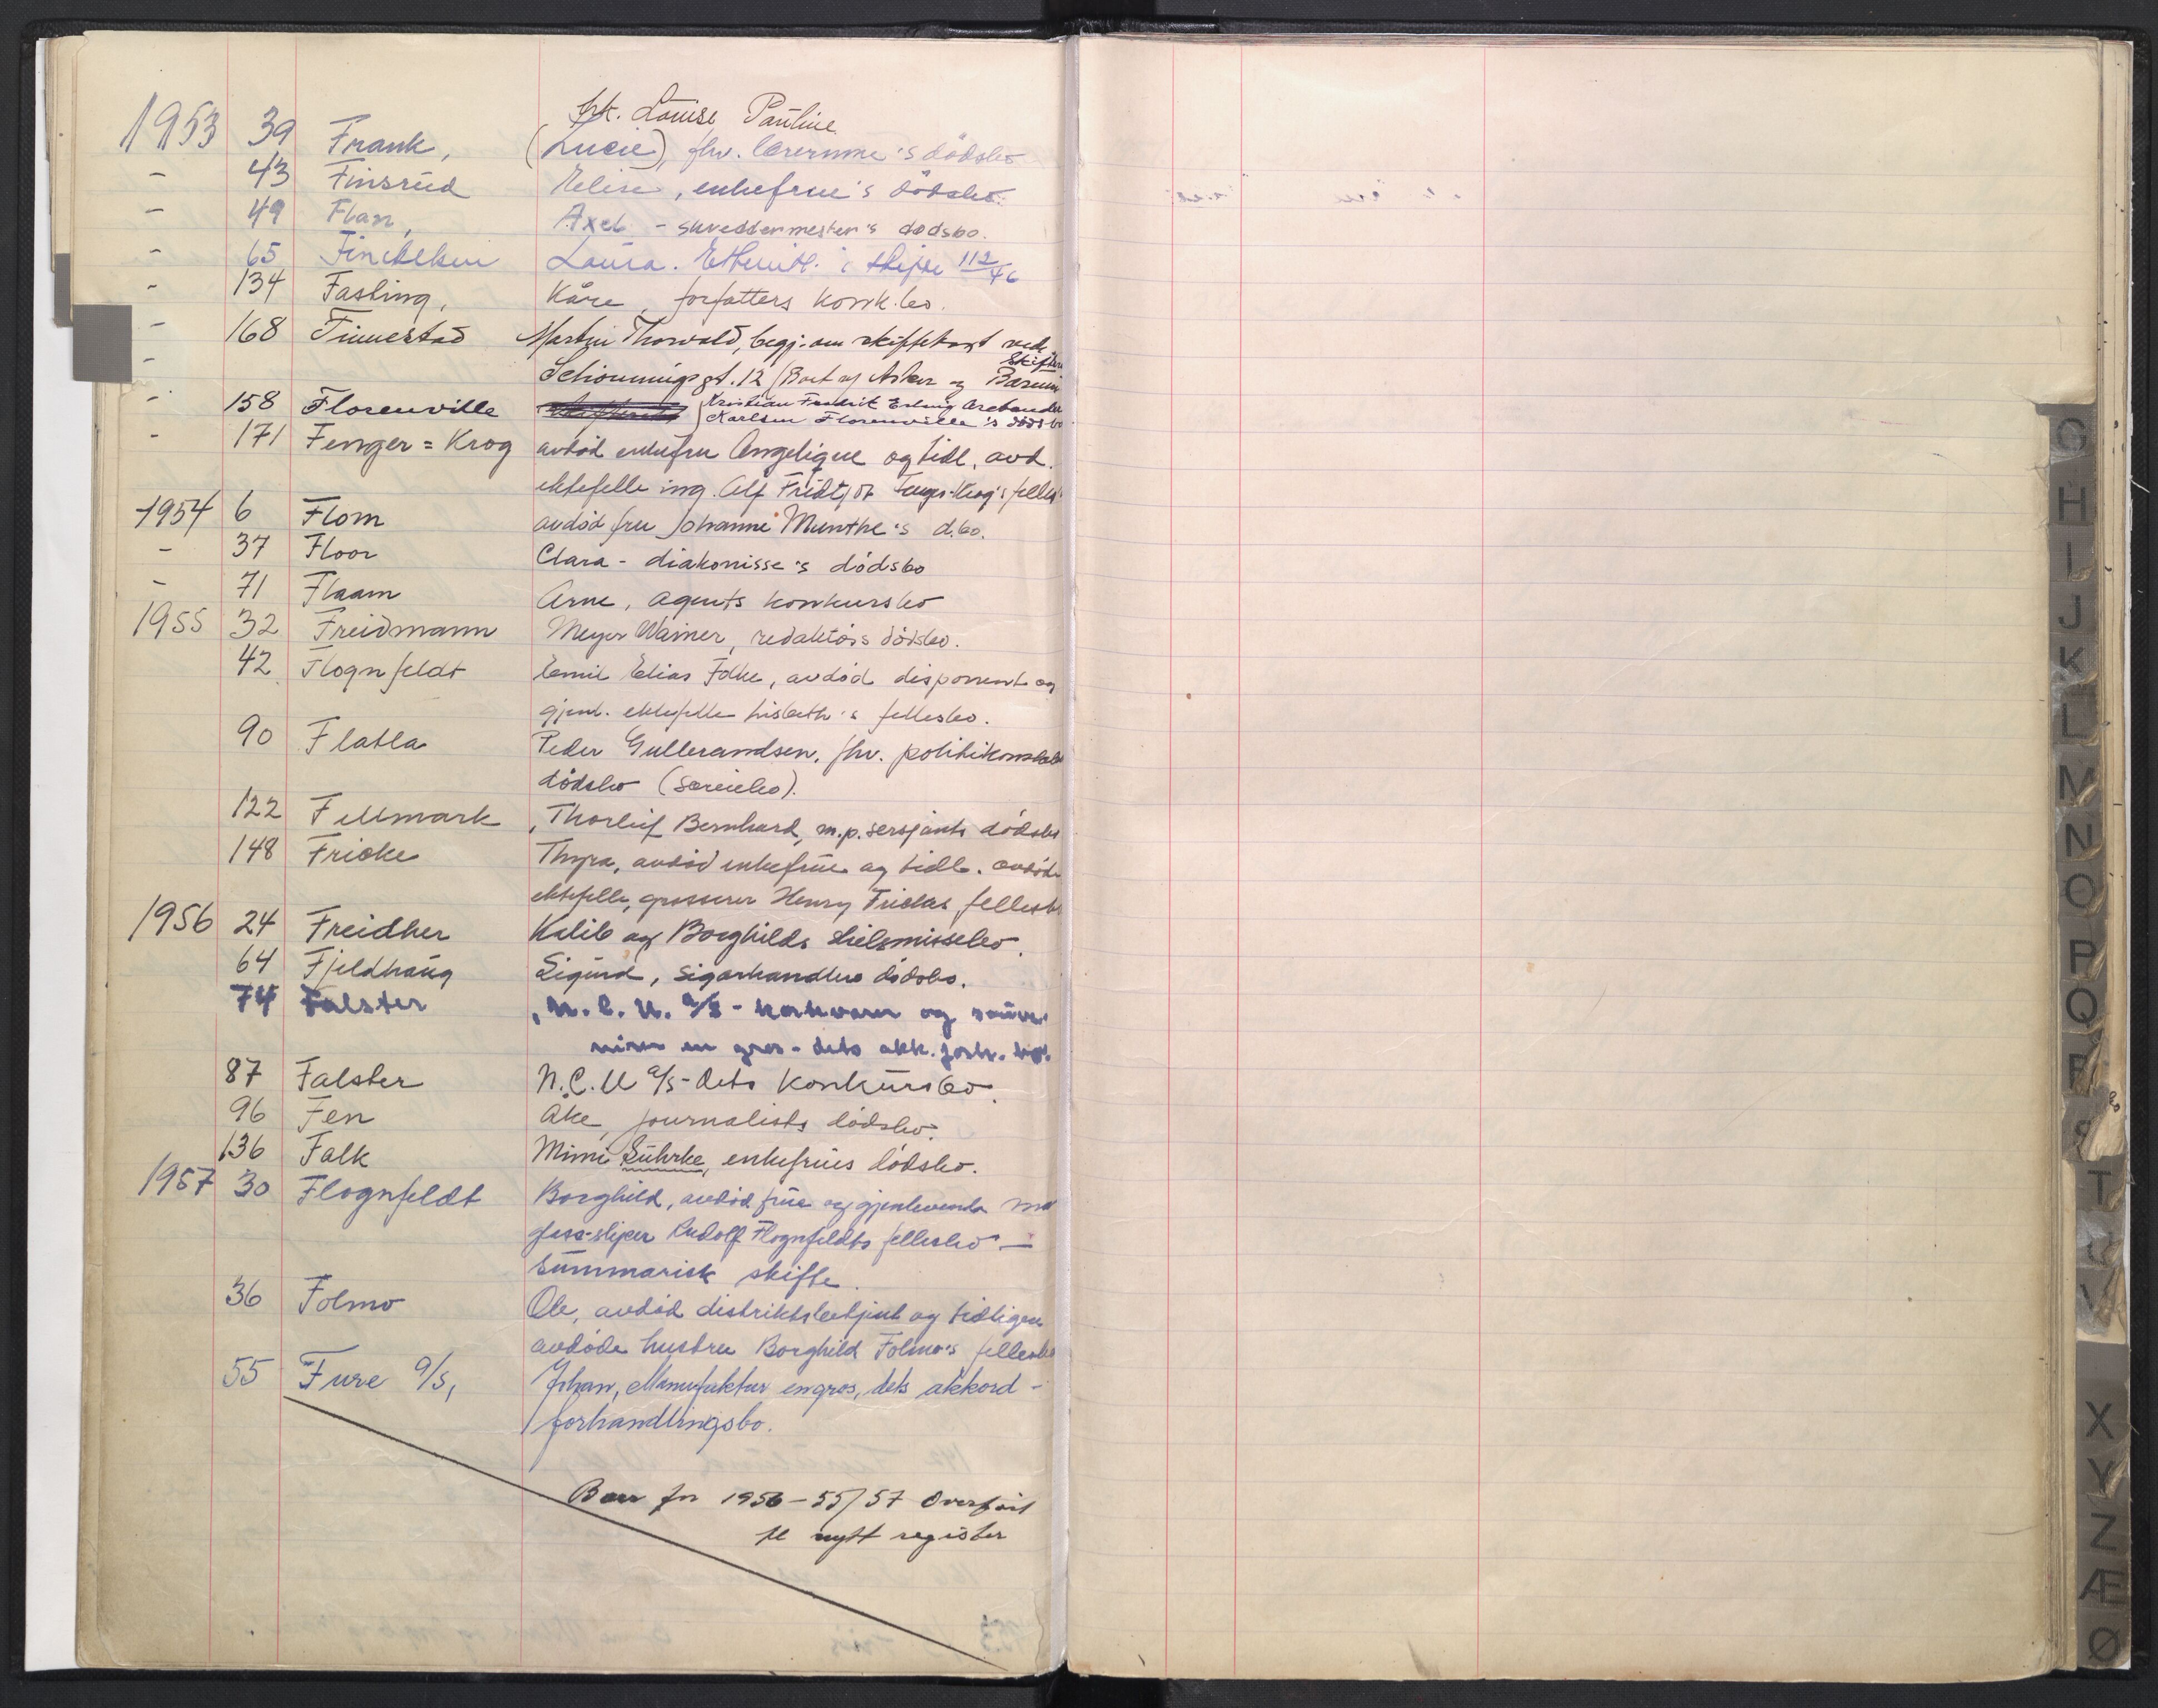 frk. Louise Pauline
1953 39 Frank, (Lucie), fhv. lærerinne's dødsbo
- 43 Finsrud Elise, enkefrue's dødsbo.
- 49 Flan, Axel - skreddermester's dødsbo.
- 65 Laura. i skifte 112/46
- 134 Fasting, Kåre, forfatters konk.bo.
- 168 Finnestad Martin Thorvald, begj. om skiftekort vedr.
- Schønningsgt. 12 (Bort af Asker og Bærum Skifter
- 158 Florenville Kristian Fredrik Erling
Karlsen Florenville's dødsbo
- 171 Fenger=Krog avdød enkefru Angelique og tidl. avd.
ektefelle ing. Alf Fridtjof Fenger-Krog's felles
1954 6 Flom avdød fru Johanne Munthe's d.bo.
- 37 Floor Clara - diakonisse's dødsbo
- 71 Flaam Arne, agents konkursbo
1955 32 Freidmann Meyer Wainer, redaktørs dødsbo.
42 Flognfeldt Emil Elias Folke, avdød disponent og
gjenl. ektefelle Lisbeth's fellesbo.
90 Flatla Peder Gullerandsen, fhv. politikonstabel
dødsbo (særeiebo).
122 Fellmark, Thorleif Bernhard, m.p. sersjants dødsbo
148 Fricke Thyra, avdød enkefrue og tidl. avdøde
ektefelle, grosserer Henry Frickes fellesbo
1956 24 Freidher Kalib og Borghilds skilsmissebo
64 Fjeldhaug Sigurd, sigarhandlers dødsbo.
74 Falster, N.C.U. a/s - korkvarer og souve-
nirer en gros - dets akk. forh. bo.
87 Falster N.C.U a/s - dets konkursbo.
96 Fen Åke, journalists dødsbo.
136 Falk Mimi Lührke, enkefrues dødsbo.
1957 30 Flognfeldt Borghild, avdød frue og gjenlevende
Rudolf Flognfeldts fellesbo -
summarisk skifte.
36 Folmo Ole, avdød distriktsbetjent og tidligere
avdøde hustru Borghild Folmo's fellesbo
55 Fure a/s, Johan, Manufaktur engros, dets akkord-
forhandlingsbo.
Boer for 1956-55/57 overført
til nytt register
G
H
I
J
K
L
M
N
O
P
Q
R
S
T
U
V
X
Y
Z
Æ
Ø